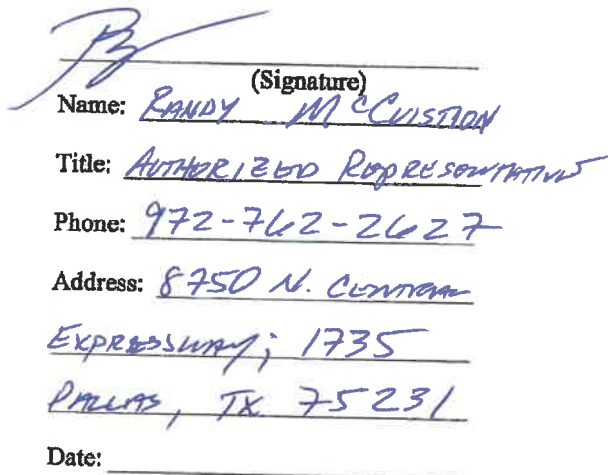 (Signature)
Name: RANDY McCUISTION
Title: AUTHORIZED REPRESENTATIVE
Phone: 972-762-2627
Address: 8750 N. CENTRAL
EXPRESSWAY; 1735
DALLAS, TX 75231
Date: